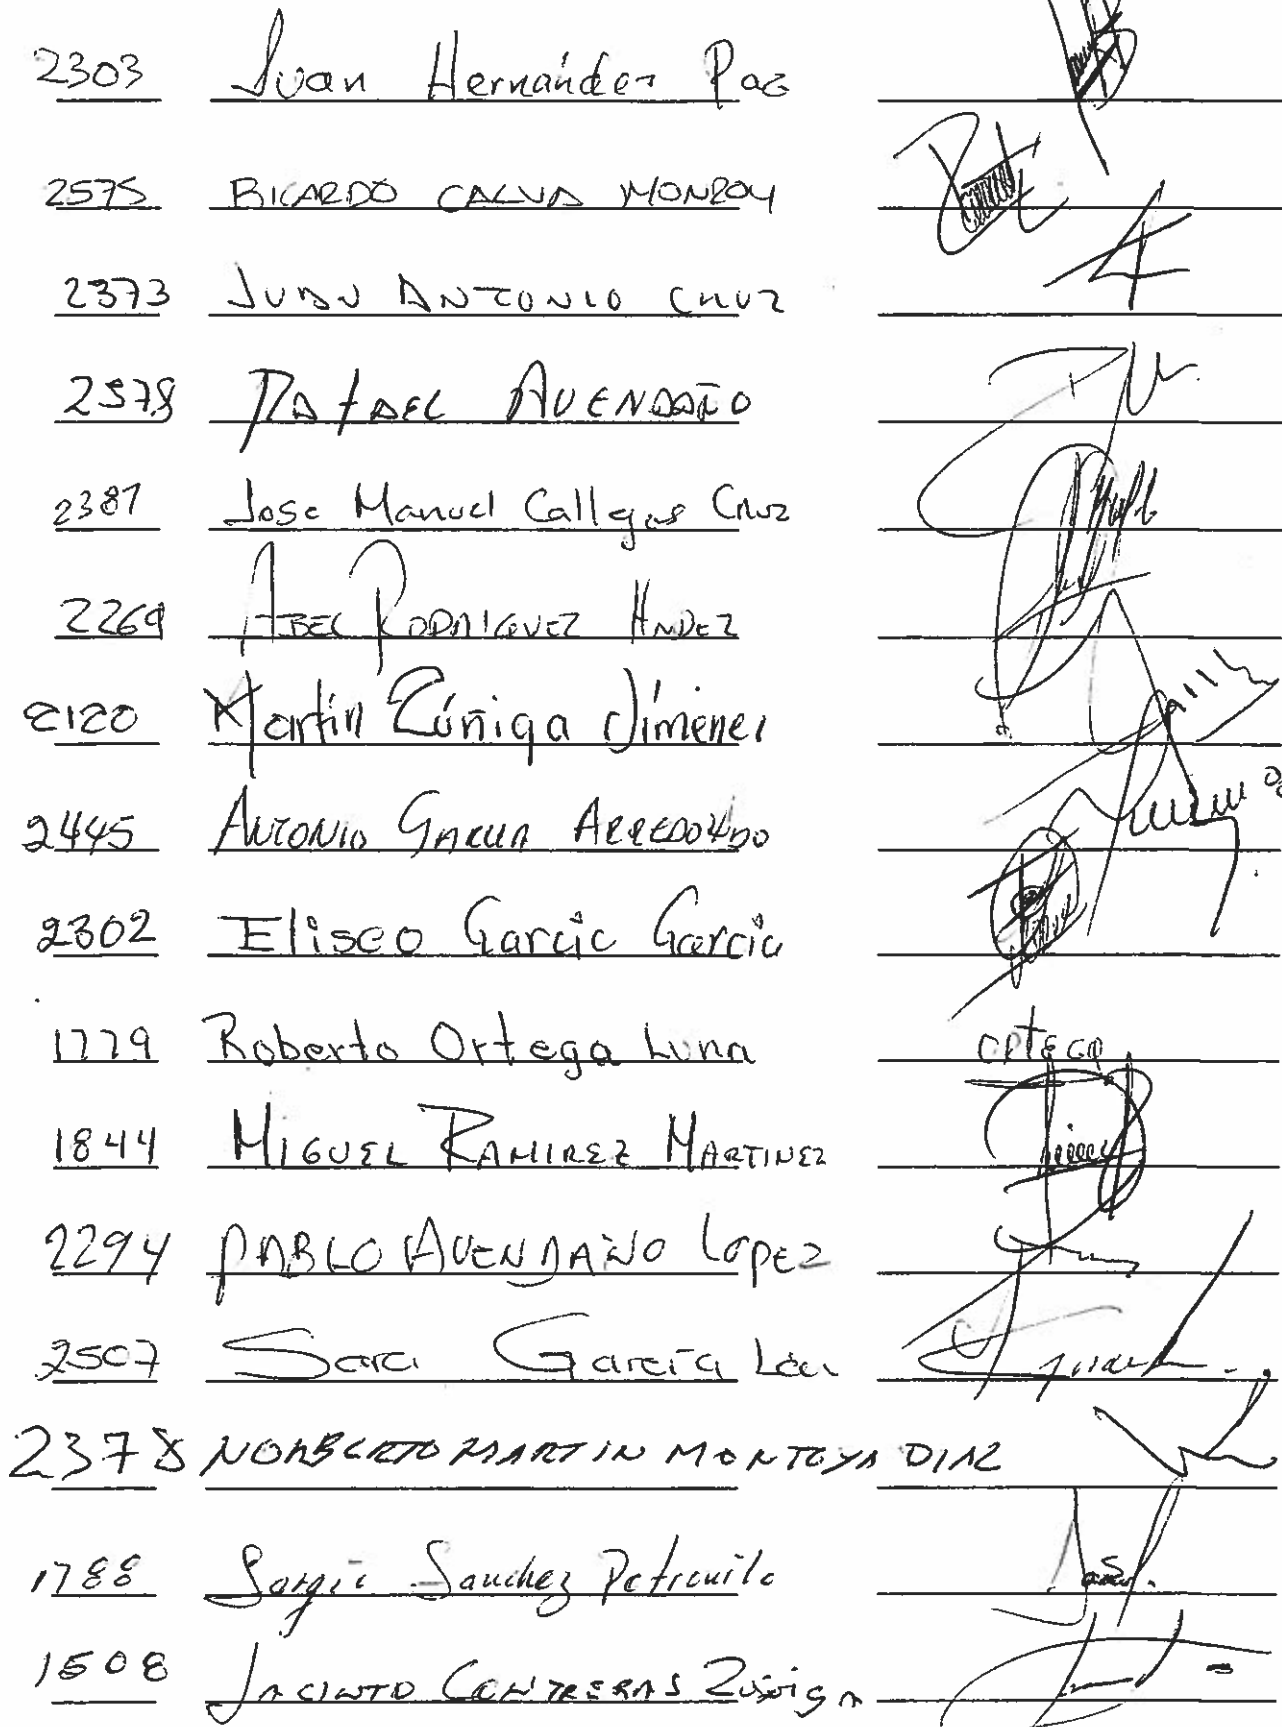 2303 Juan Hernández Paz
2575 RICARDO CALVA MONROY
2373 JUAN ANTONIO CRUZ
2578 RAFAEL AVENDAÑO
2387 Jose Manuel Callejas Cruz
2269 ABEL RODRIGUEZ HNDEZ
2120 Martín Zúñiga Jiménez
2445 ANTONIO GARCIA ARREDONDO
2302 Eliseo García García
1779 Roberto Ortega Luna ORTEGA
1844 MIGUEL RAMIREZ MARTINEZ
2294 PABLO AVENDAÑO LOPEZ
2507 Sara García
2378 NORBERTO MARTIN MONTOYA DIAZ
1788 Sergio Sanchez Petronilo
1508 JACINTO CONTRERAS Zuñiga